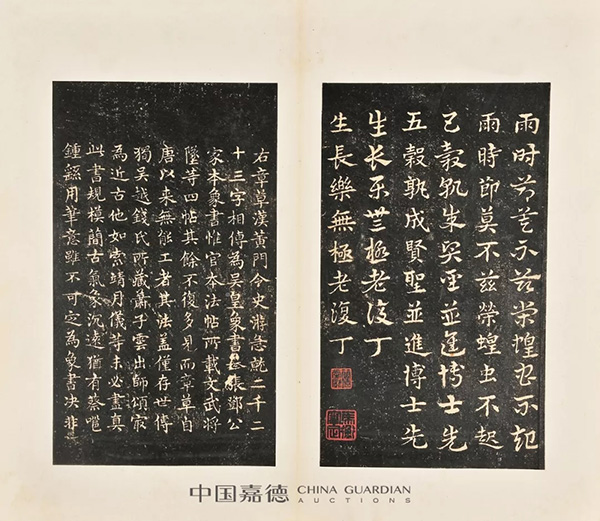 雨時節莫不兹榮蝗虫不起
雨時節莫不兹榮蝗虫不起
五穀孰成賢聖並進博士先
五穀孰成賢聖並進博士先
生长樂無極老復丁
生長樂無極老復丁
右章草漢黃門令史游急就二千二
十三字相傳為吳皇象書張鄧公
家本象書惟官本法帖所載文武將
隊等四帖其餘不復多見而章草自
唐以來無能工者其法蓋僅存世傳
獨吳越錢氏所藏蕭子雲出師頌冣
為近古他如索靖月儀等未必盡真
此書規模簡古氣象沉遠猶有蔡邕
鍾繇用筆意雖不可定為象書决非
中国嘉德 CHINA GUARDIAN
AUCTIONS